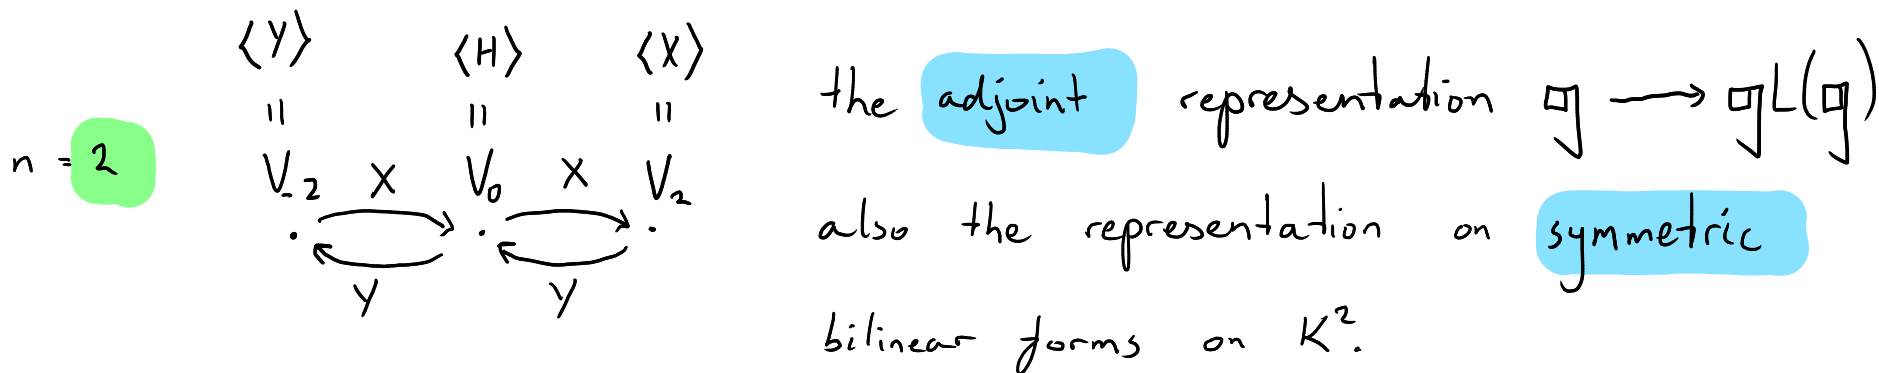 ⟨Y⟩ ⟨H⟩ ⟨X⟩
= = =
n = 2 V₋₂ X V₀ X V₂
Y Y
the adjoint representation g ⟶ gL(g)
also the representation on symmetric
bilinear forms on K².